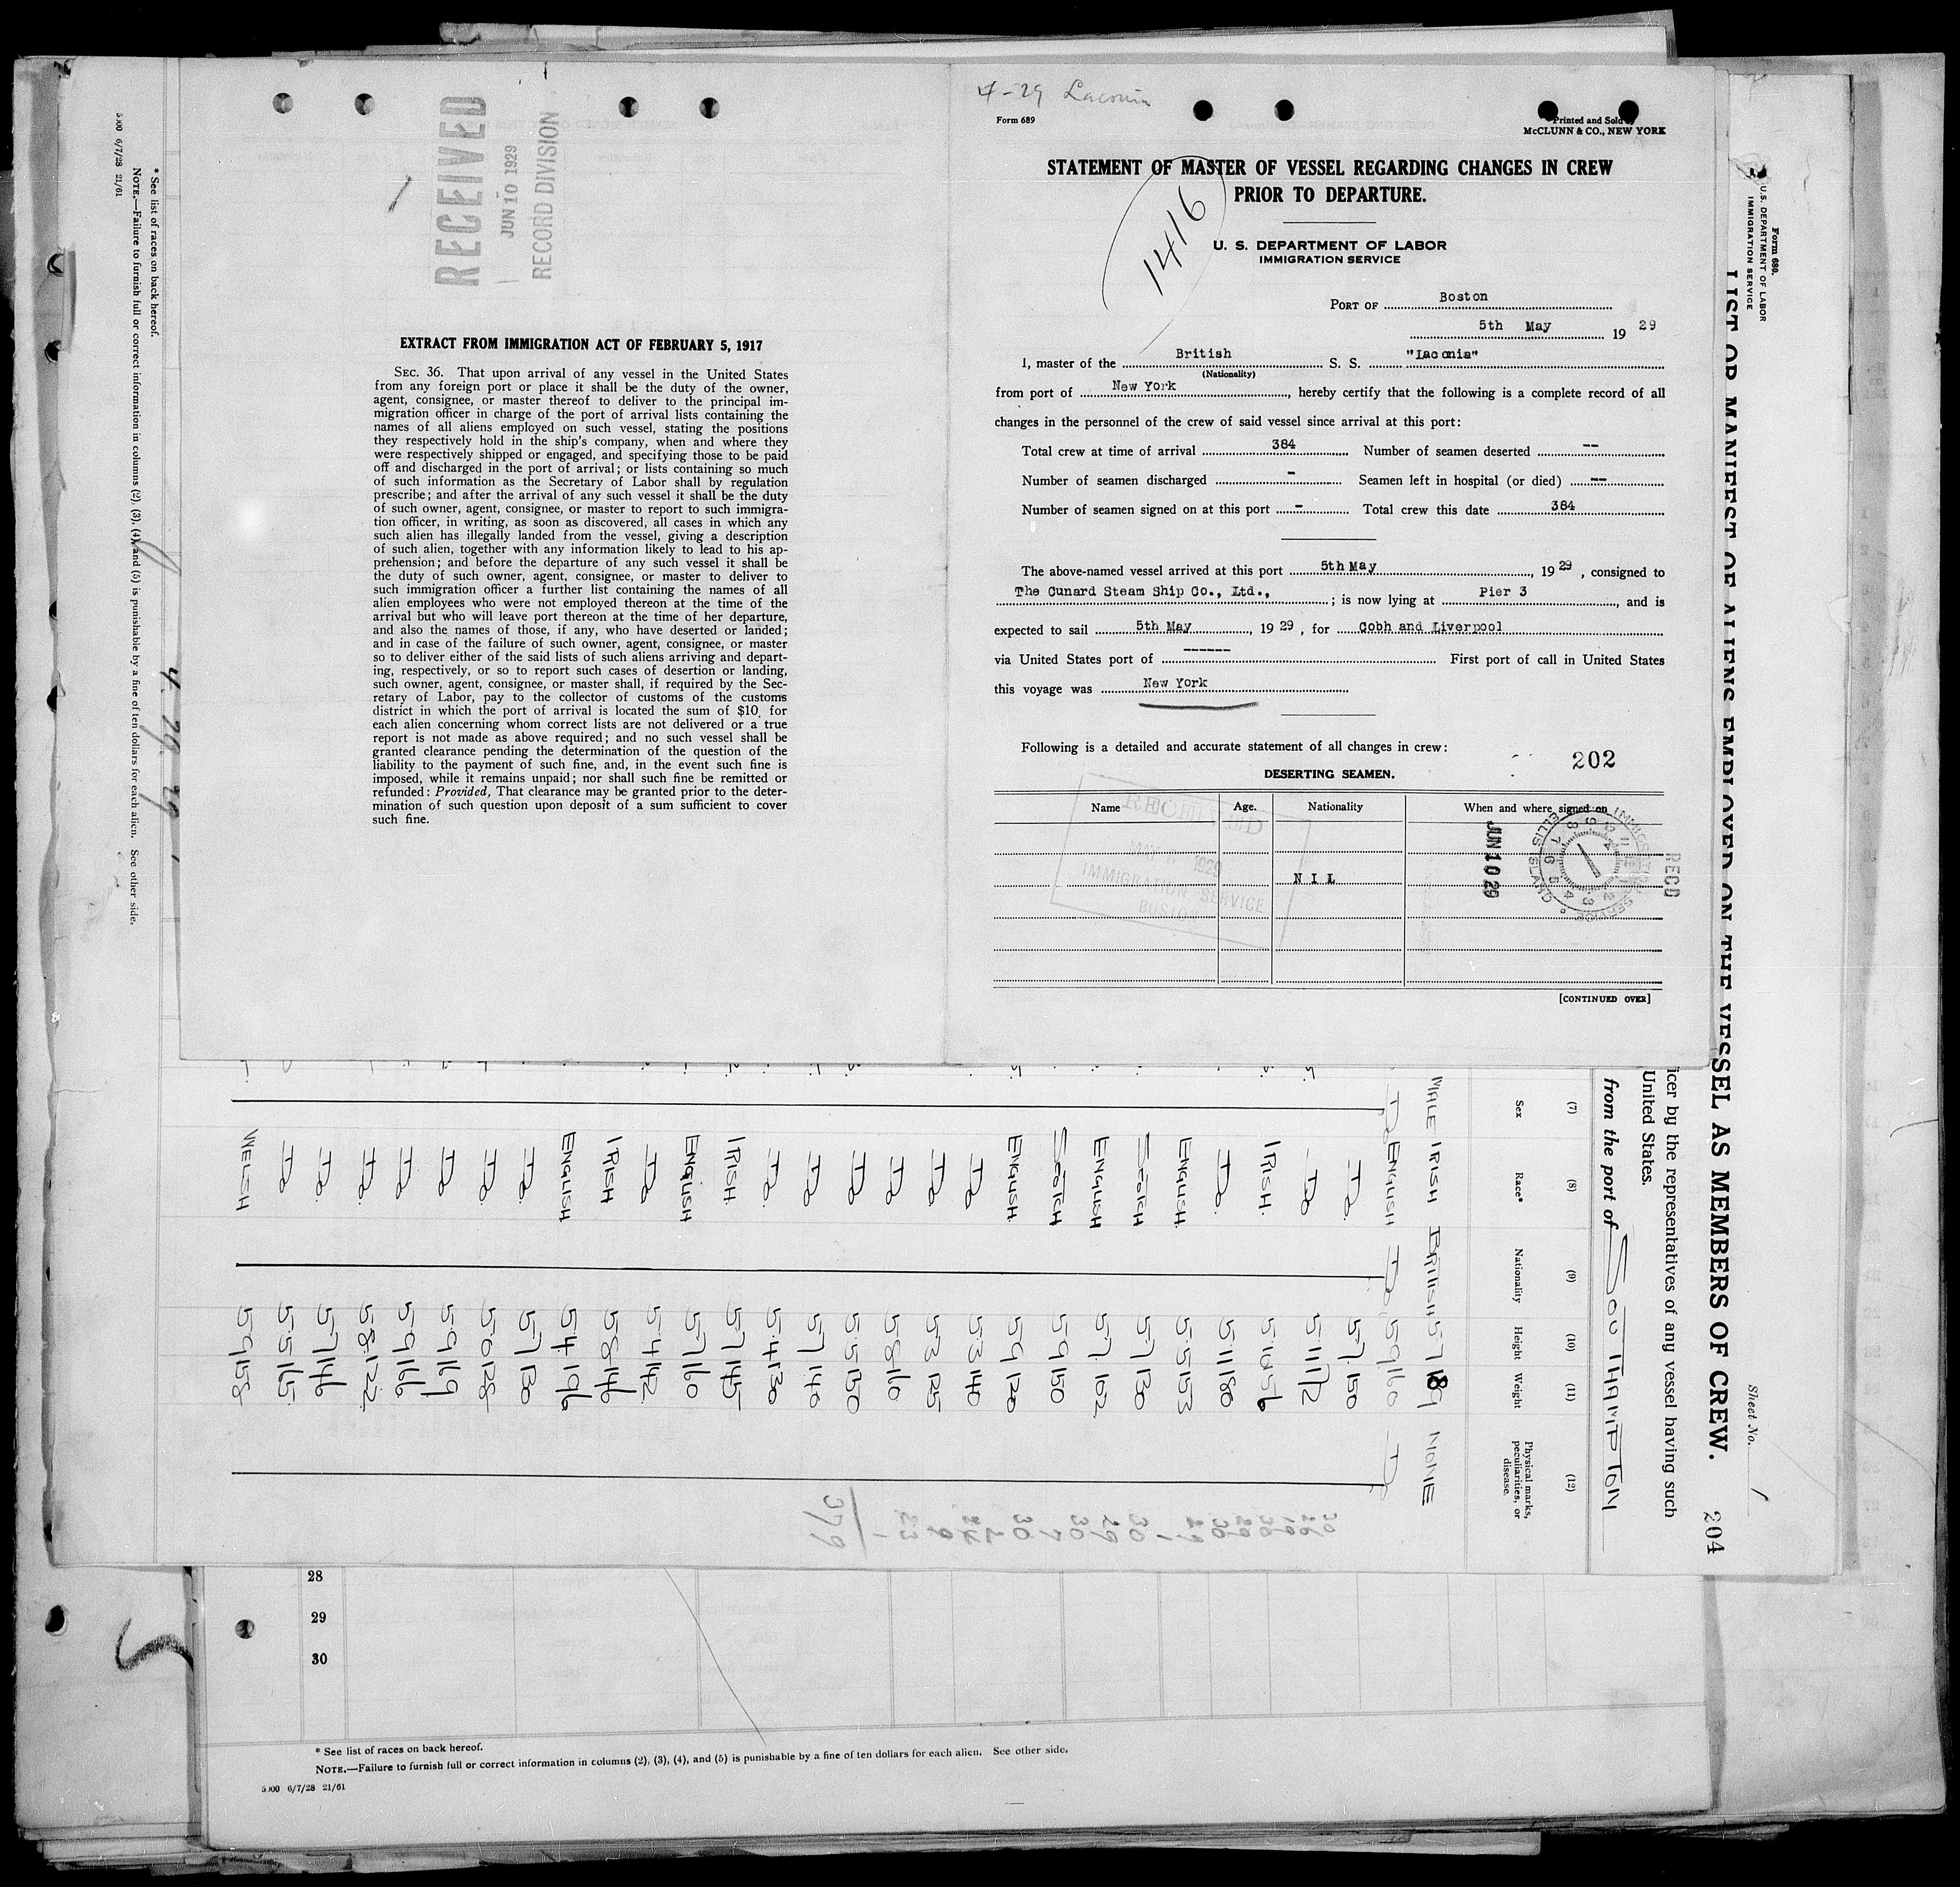 4-29 Laconia
Form 689
Printed and Sold by
McCLUNN & CO., NEW YORK
STATEMENT OF MASTER OF VESSEL REGARDING CHANGES IN CREW
PRIOR TO DEPARTURE.
1416
U. S. DEPARTMENT OF LABOR
IMMIGRATION SERVICE
PORT OF Boston
5th May 19 29
I, master of the British S. S. "Laconia"
(Nationality)
from port of New York, hereby certify that the following is a complete record of all
changes in the personnel of the crew of said vessel since arrival at this port:
Total crew at time of arrival 384 Number of seamen deserted --
Number of seamen discharged - Seamen left in hospital (or died) --
Number of seamen signed on at this port - Total crew this date 384
The above-named vessel arrived at this port 5th May, 19 29, consigned to
The Cunard Steam Ship Co., Ltd., ; is now lying at Pier 3, and is
expected to sail 5th May, 19 29, for Cobh and Liverpool
via United States port of ------ First port of call in United States
this voyage was New York
Following is a detailed and accurate statement of all changes in crew:
202
DESERTING SEAMEN.
Name Age. Nationality When and where signed on
NIL
[CONTINUED OVER]
RECEIVED
MAY 1929
IMMIGRATION SERVICE
BOSTON
JUN 10 29
RECD
IMMIGRATION SERVICE
ELLIS ISLAND
RECEIVED
JUN 10 1929
RECORD DIVISION
EXTRACT FROM IMMIGRATION ACT OF FEBRUARY 5, 1917
SEC. 36. That upon arrival of any vessel in the United States
from any foreign port or place it shall be the duty of the owner,
agent, consignee, or master thereof to deliver to the principal im-
migration officer in charge of the port of arrival lists containing the
names of all aliens employed on such vessel, stating the positions
they respectively hold in the ship's company, when and where they
were respectively shipped or engaged, and specifying those to be paid
off and discharged in the port of arrival; or lists containing so much
of such information as the Secretary of Labor shall by regulation
prescribe; and after the arrival of any such vessel it shall be the duty
of such owner, agent, consignee, or master to report to such immigra-
tion officer, in writing, as soon as discovered, all cases in which any
such alien has illegally landed from the vessel, giving a description
of such alien, together with any information likely to lead to his ap-
prehension; and before the departure of any such vessel it shall be
the duty of such owner, agent, consignee, or master to deliver to
such immigration officer a further list containing the names of all
alien employees who were not employed thereon at the time of the
arrival but who will leave port thereon at the time of her departure,
and also the names of those, if any, who have deserted or landed;
and in case of the failure of such owner, agent, consignee, or master
so to deliver either of the said lists of such aliens arriving and depart-
ing, respectively, or so to report such cases of desertion or landing,
such owner, agent, consignee, or master shall, if required by the Sec-
retary of Labor, pay to the collector of customs of the customs
district in which the port of arrival is located the sum of $10 for
each alien concerning whom correct lists are not delivered or a true
report is not made as above required; and no such vessel shall be
granted clearance pending the determination of the question of the
liability to the payment of such fine, and, in the event such fine is
imposed, while it remains unpaid; nor shall such fine be remitted or
refunded: Provided, That clearance may be granted prior to the deter-
mination of such question upon deposit of a sum sufficient to cover
such fine.
Form 680.
U.S. DEPARTMENT OF LABOR
IMMIGRATION SERVICE
Sheet No. 1
LIST OR MANIFEST OF ALIENS EMPLOYED ON THE VESSEL AS MEMBERS OF CREW. 204
icer by the representatives of any vessel having such
United States.
from the port of SOUTHAMPTON
(7) (8) (9) (10) (11) (12)
Sex Race* Nationality Height Weight Physical marks, peculiarities, or disease.
MALE IRISH BRITISH 57 189 NONE
Do ENGLISH Do 59 160 Do
Do. 57 150
Do 511 172
IRISH. 510 156
Do. 511 180
ENGLISH. 55 153
SCOTCH 57 130
ENGLISH 57 162
SCOTCH 59 150
ENGLISH 59 120
Do 53 140
Do 53 125
Do 58 160
Do 55 150
Do 57 140
Do. 54 130
IRISH. 57 145
ENGLISH 57 160
Do 54 142
IRISH 58 146
ENGLISH 54 196
Do. 57 130
Do 50 128
Do 59 169
Do 59 166
Do. 58 122
Do. 57 146
Do 55 165
WELSH 59 158
379
* See list of races on back hereof.
NOTE.—Failure to furnish full or correct information in columns (2), (3), (4), and (5) is punishable by a fine of ten dollars for each alien. See other side.
5000 6/7/28 21/61
4 29 29
28
29
30
* See list of races on back hereof.
NOTE.—Failure to furnish full or correct information in columns (2), (3), (4), and (5) is punishable by a fine of ten dollars for each alien. See other side.
5000 6/7/28 21/61